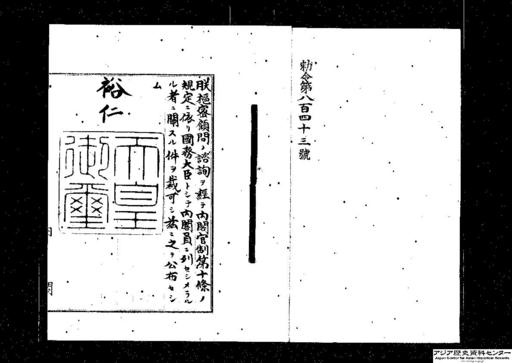 勅令第八百四十三號
朕樞密顧問ノ諮詢ヲ經テ內閣官制第十條ノ
規定ニ依リ國務大臣トシテ內閣員ニ列セシメラル
ル者ニ關スル件ヲ裁可シ茲ニ之ヲ公布セシ
ム
裕仁
天皇御璽
アジア歴史資料センター
Japan Center for Asian Historical Records